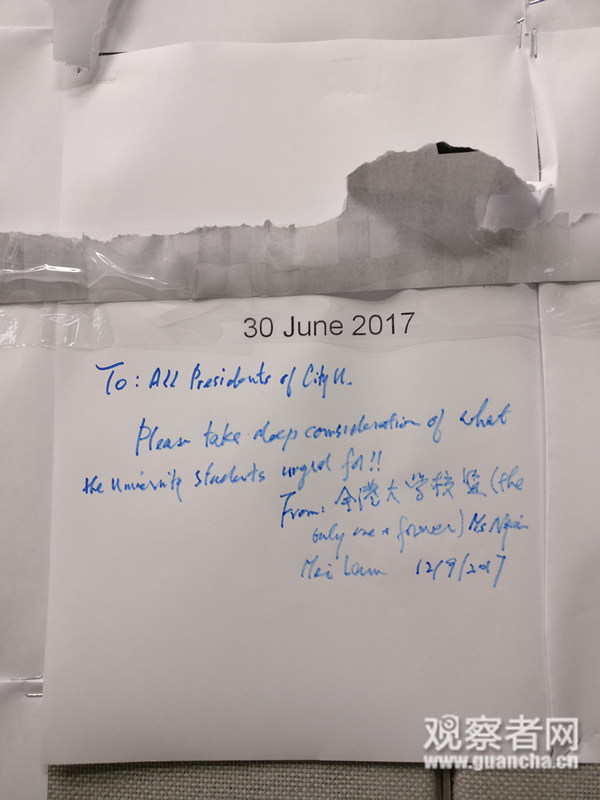 30 June 2017
To: All Presidents of City U.
Please take deep consideration of what
the University students urged for!!
From: 全港大学校监 (the
only one & forever) Ms Ngan
Mei Lam 12/9/2017
观察者网
www.guancha.cn